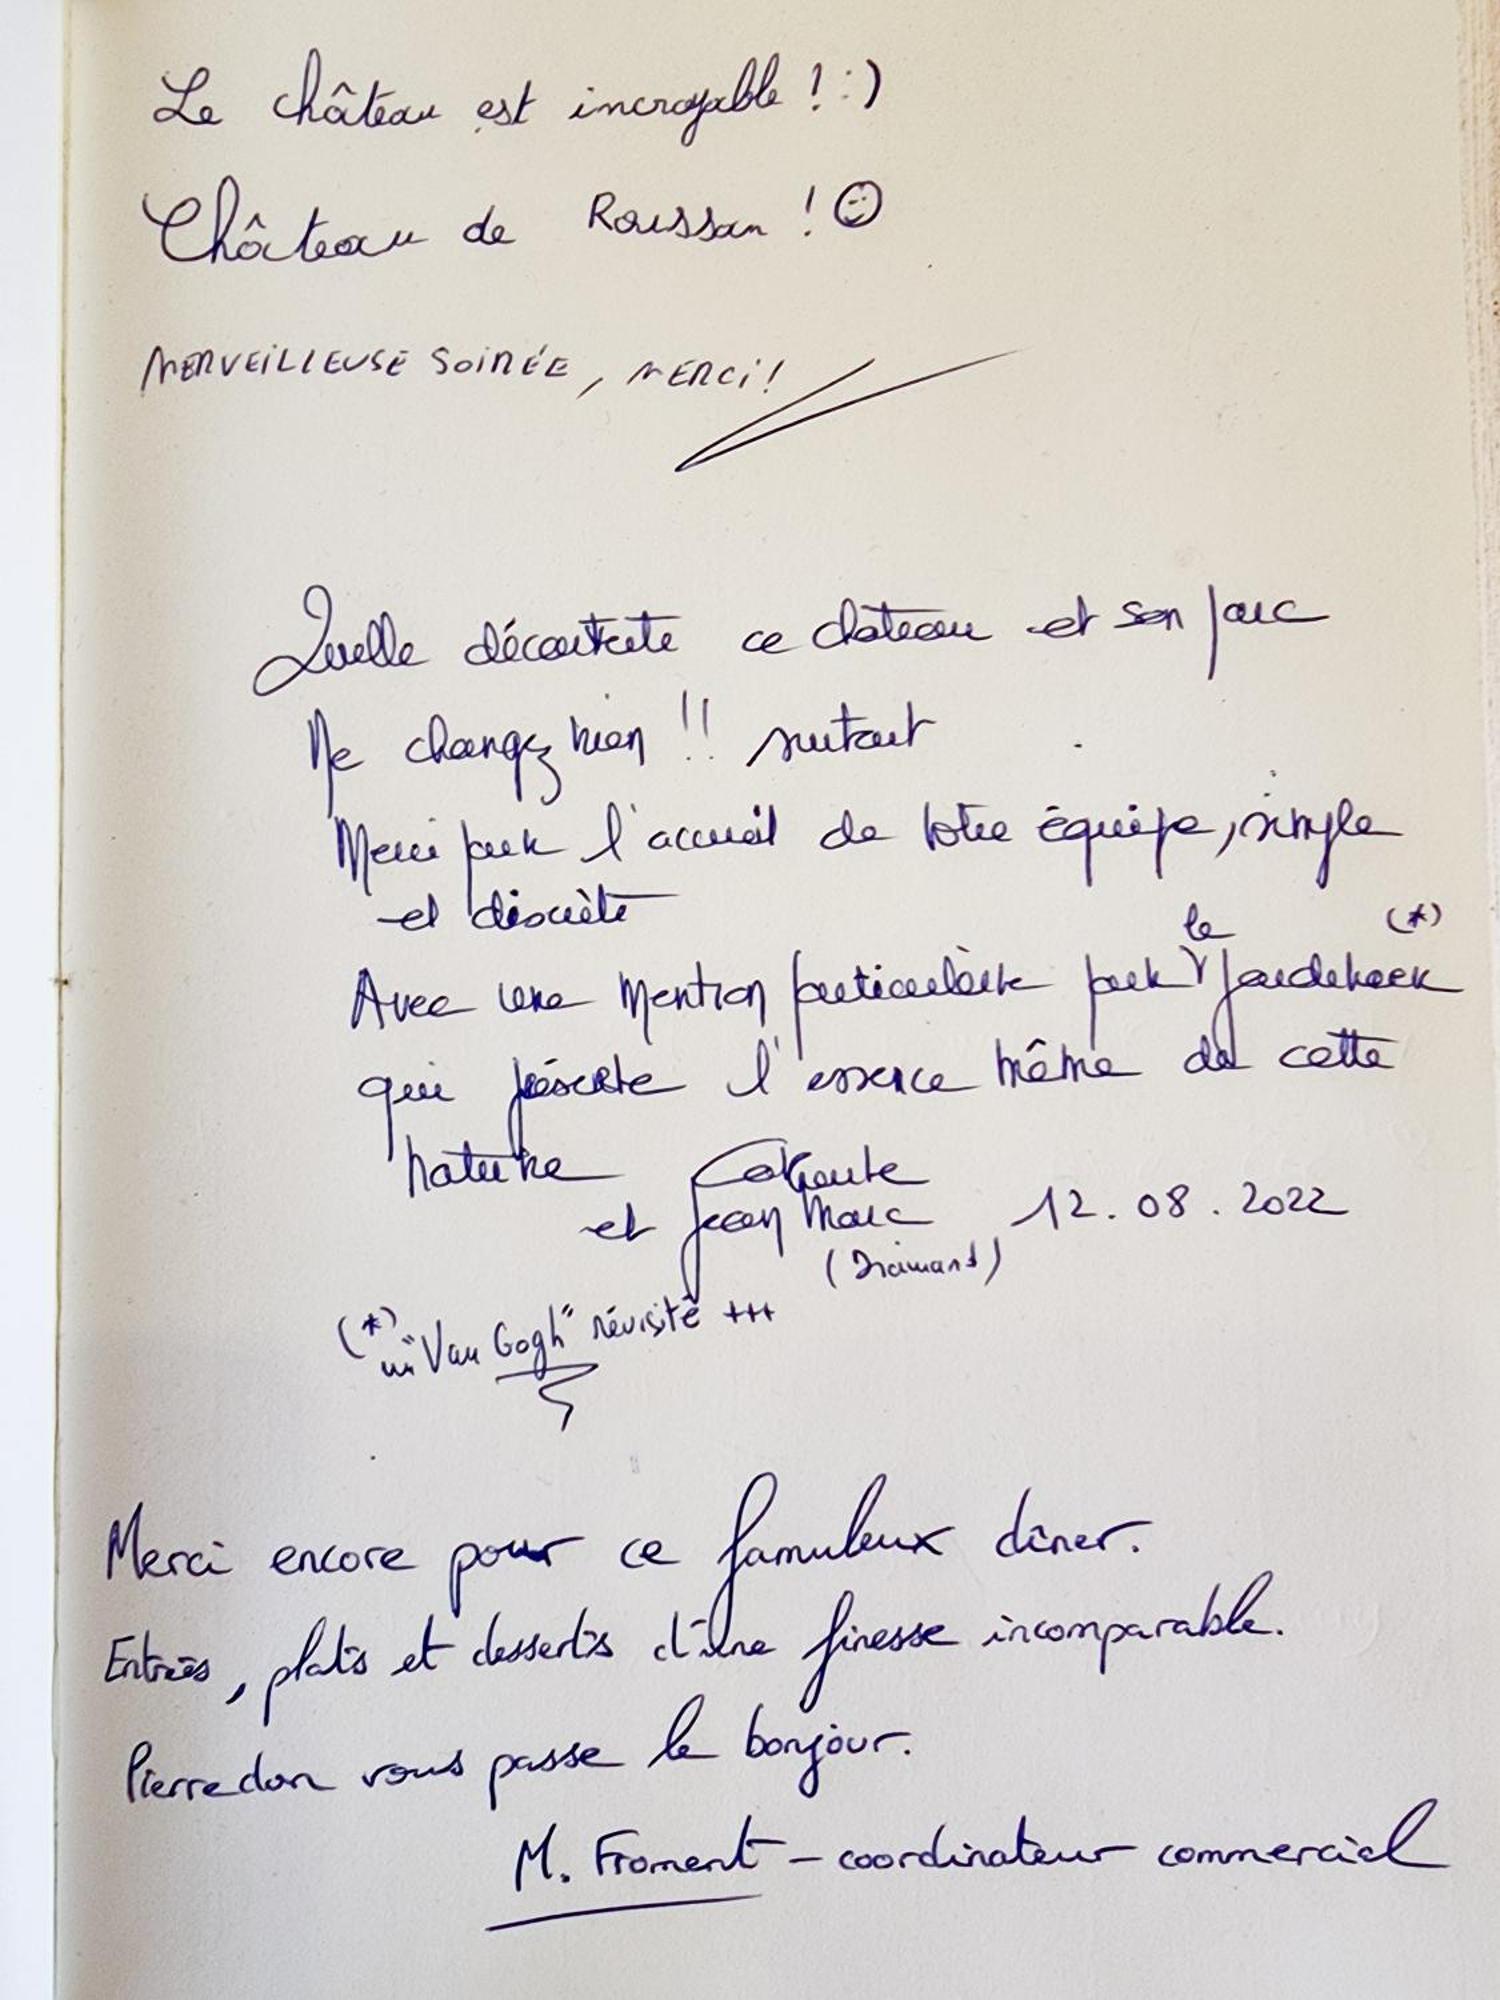 Le château est incroyable ! :)
Château de Roussan ! ☺
MERVEILLEUSE SOIRÉE, MERCI !
Quelle découverte ce château et son parc
Ne changez rien !! surtout
Merci pour l'accueil de votre équipe, simple
et discrète
le (*)
Avec une mention particulière pour jardinier
qui présente l'essence même de cette
nature
et Jean Marc 12.08.2022
(*)
un "Van Gogh" révisité +++
Merci encore pour ce famuleux dîner.
Entrées, plats et desserts d'une finesse incomparable.
Pierredon vous passe le bonjour.
M. Froment - coordinateur commercial